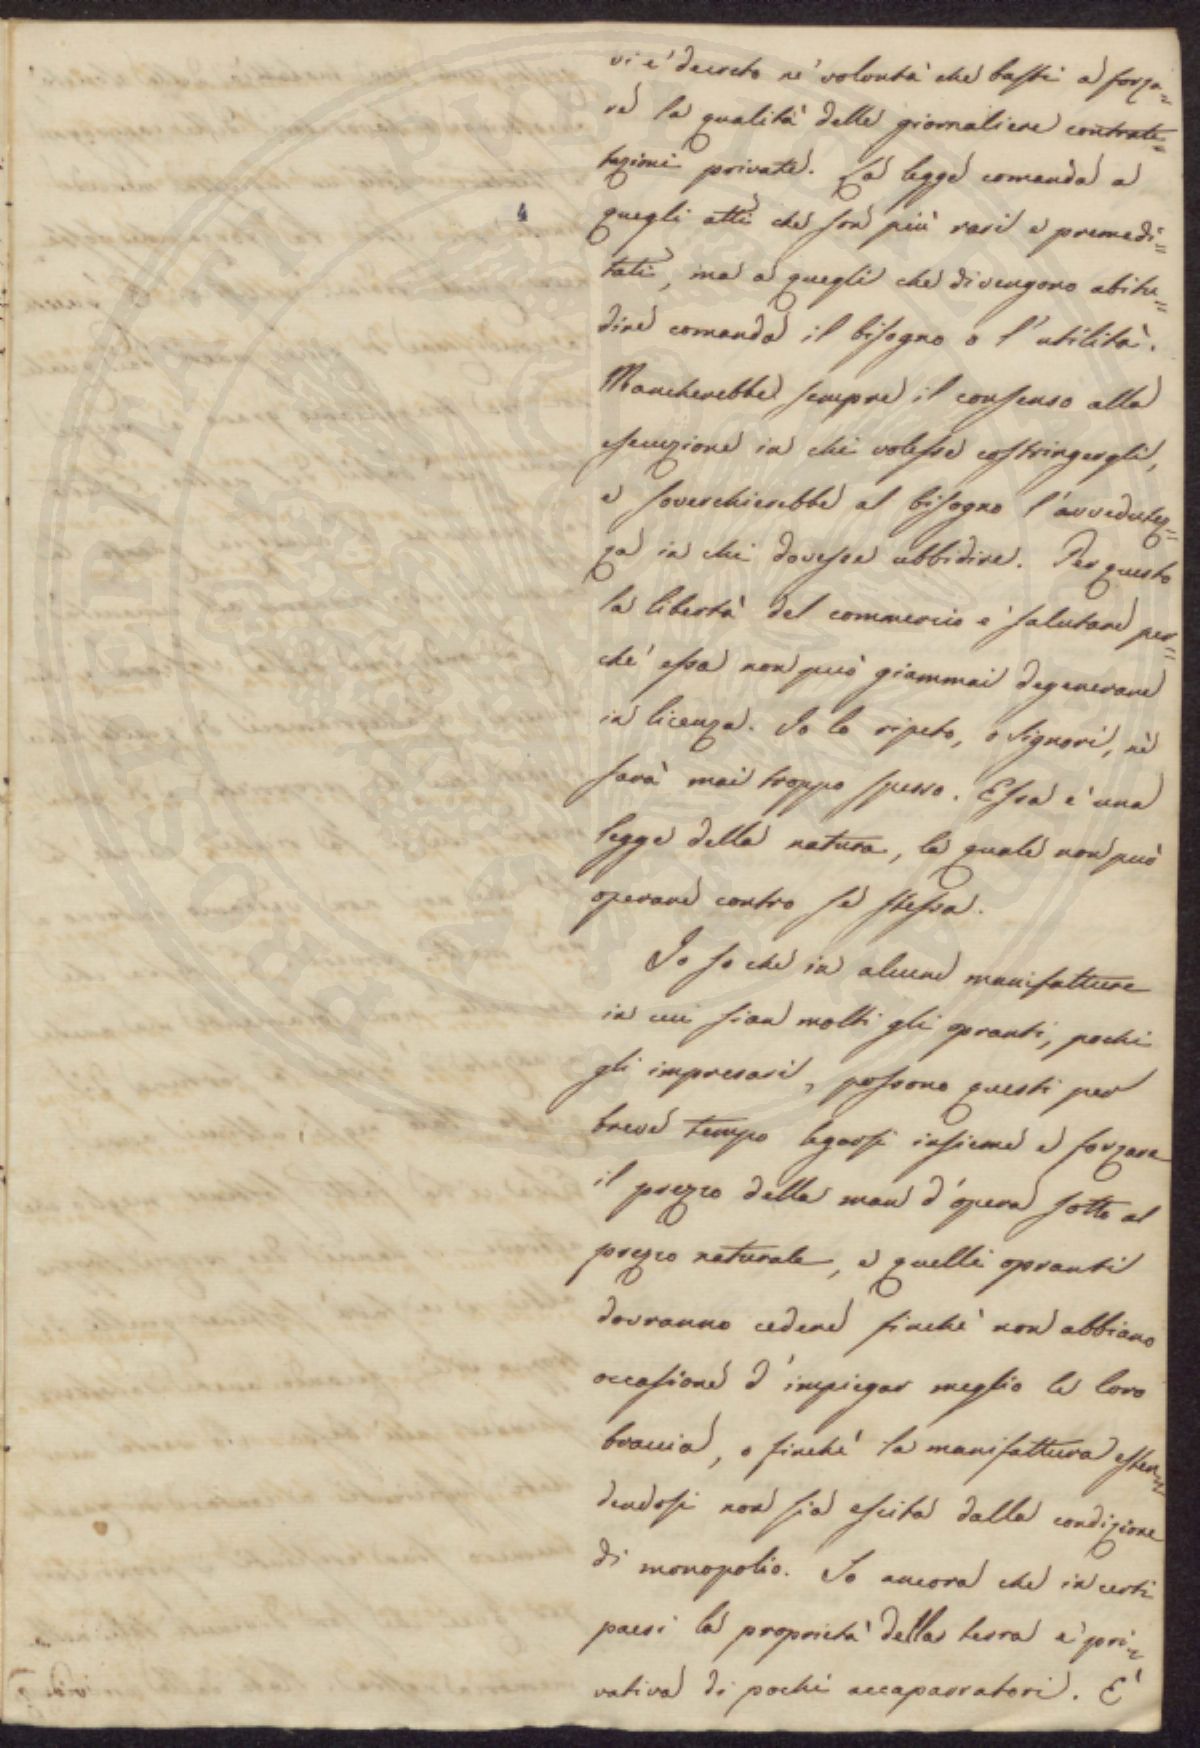 vi è decreto nè volontà che basti a forza=
re la qualità delle giornaliere contrat=
tazioni private. La legge comanda a
quegli atti che son più rari e premedi=
tati, ma a quegli che divengono abitu=
dine comanda il bisogno o l'utilità.
Mancherebbe sempre il consenso alla
esecuzione in chi volesse costringergli,
e soverchierebbe al bisogno l'avvedutez=
za in chi dovesse ubbidire. Per questo
la libertà del commercio è salutare per=
chè essa non può giammai degenerare
in licenza. Io lo ripeto, o Signori, nè
sarà mai troppo spesso. Essa è una
legge della natura, la quale non può
operare contro se stessa.
Io so che in alcune manifatture
in cui sian molti gli opranti, pochi
gli impresari, possono questi per
breve tempo legarsi insieme e forzare
il prezzo della man d'opera sotto al
prezzo naturale, e quelli opranti
dovranno cedere finchè non abbiano
occasione d'impiegar meglio le loro
braccia, o finchè la manifattura esten=
dendosi non sia escita dalla condizione
di monopolio. So ancora che in certi
paesi la proprietà della terra è pri=
vativa di pochi accaparratori. E'